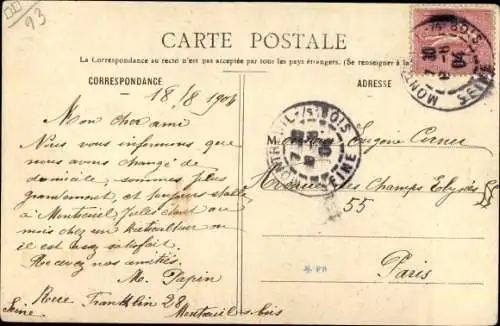 93
CARTE POSTALE
La Correspondance au recto n'est pas acceptée par tout les pays étrangers. (Se renseigner à la
CORRESPONDANCE
ADRESSE
18/8 1904
Mon cher ami
Nous vous informons que
nous avons changé de
domicile, sommes plus
grandement, et toujours
à Montreuil, Jules étant au
mois chez un
il est assez satisfait.
Recevez nos amitiés.
M. Papin
Rue Franklin 28
Montreuil s/bois
Seine
Monsieur Eugène
Avenue des Champs Elysées
55
Paris
MONTREUIL-S-BOIS
SEINE
MONTREUIL-S-BOIS
SEINE